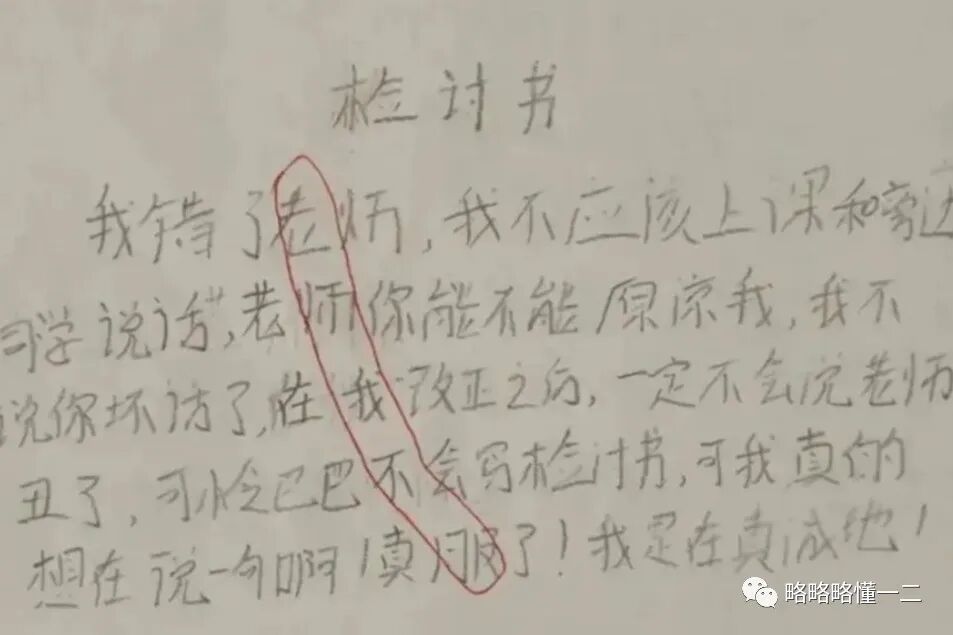 检讨书
我错了老师,我不应该上课和旁边
同学说话,老师你能不能原谅我,我不
说你坏话了,在我改正之后,一定不会说老师
丑了,可怜巴巴不会写检讨书,可我真的
想在说一句啊!真服了!我是在真诚地!
略略略懂一二